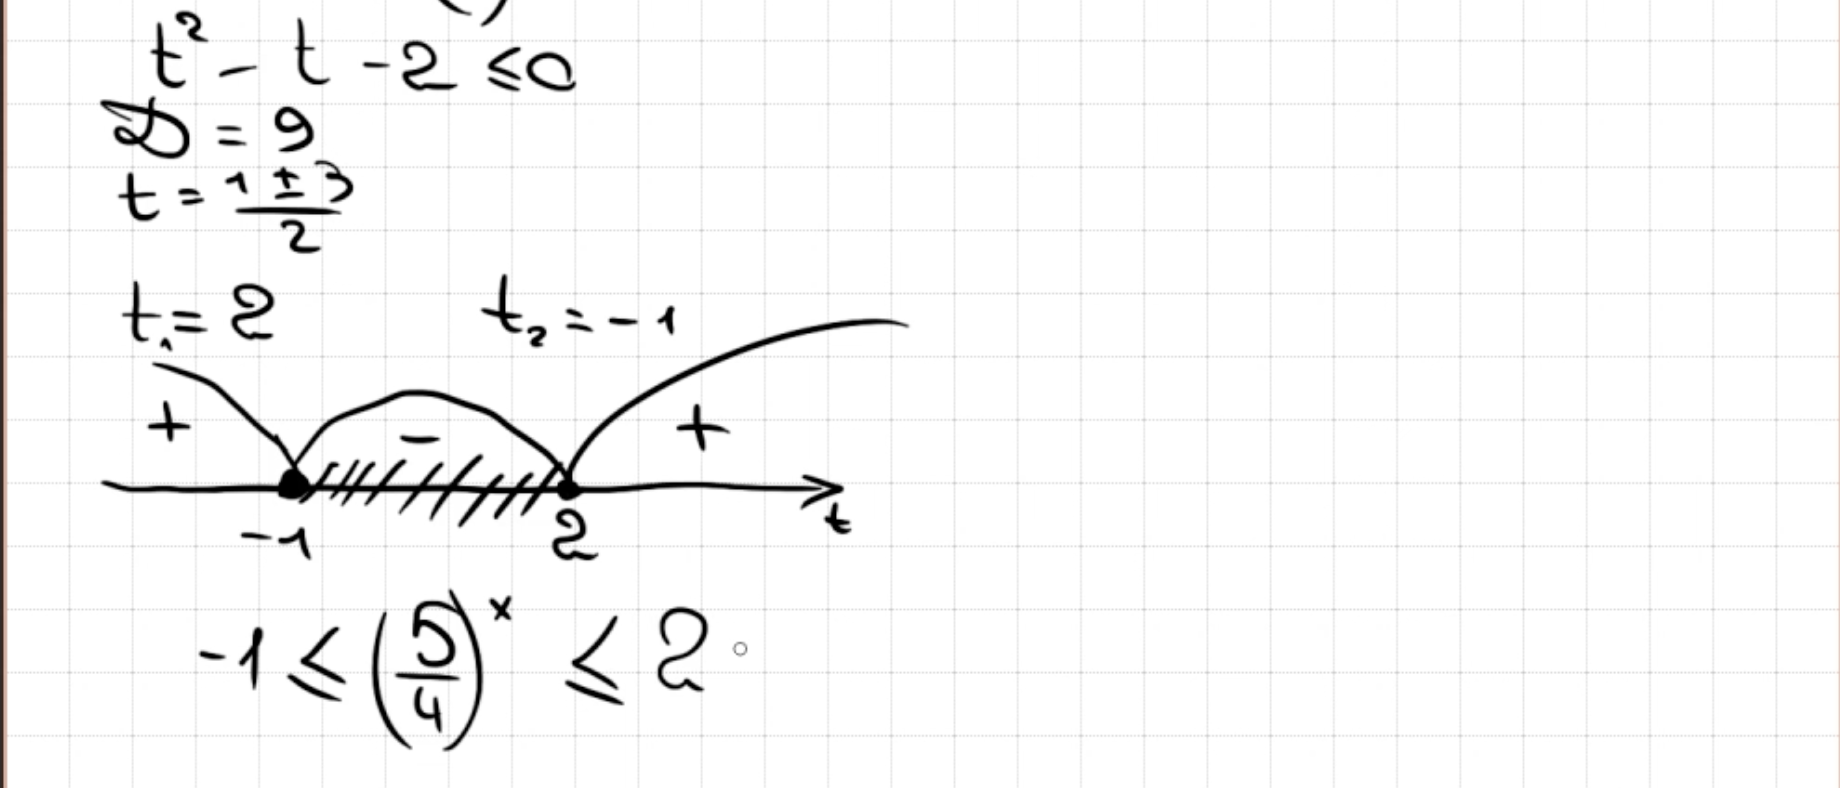 t² - t - 2 ≤ 0
D = 9
t = (1 ± 3)/2
t₁ = 2 t₂ = -1
+ - +
-1 2 t
-1 ≤ (5/4)ˣ ≤ 2